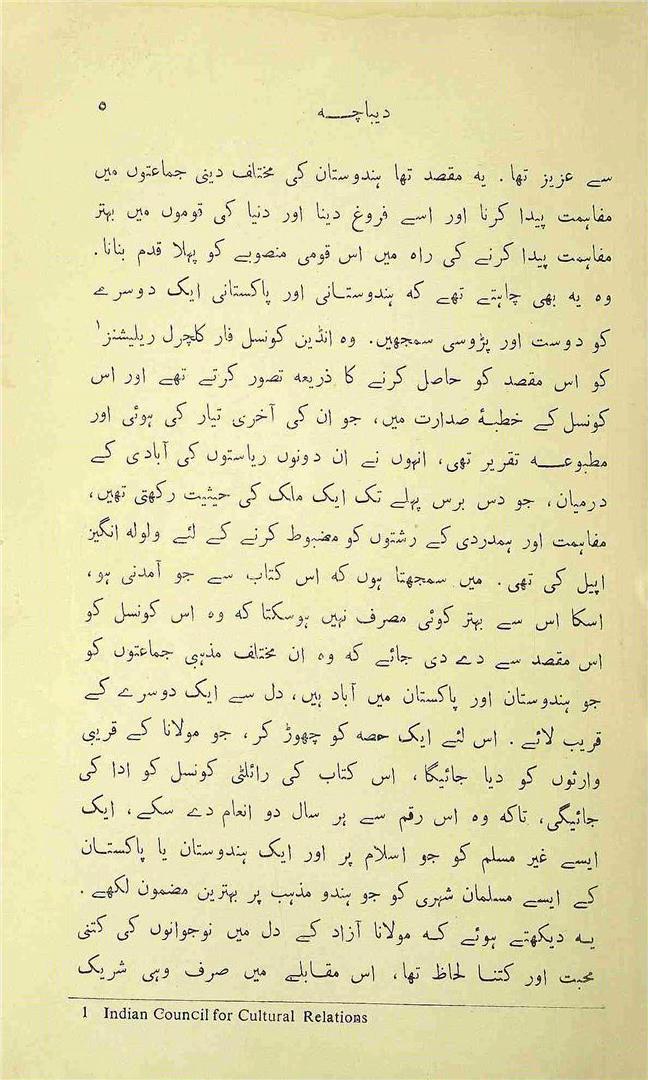 دیباچـــہ ۵
سے عزیز تھا۔ یہ مقصد تھا ہندوستان کی مختلف دینی جماعتوں میں
مفاہمت پیدا کرنا اور اسے فروغ دینا اور دنیا کی قوموں میں بہتر
مفاہمت پیدا کرنے کی راہ میں اس قومی منصوبے کو پہلا قدم بنانا۔
وہ یہ بھی چاہتے تھے کہ ہندوستـانی اور پاکستانی ایک دوسرے
کو دوست اور پڑوسی سمجھیں۔ وہ انڈین کونسل فار کلچرل ریلیشنز۱
کو اس مقصد کو حاصل کرنے کا ذریعہ تصور کرتے تھے اور اس
کونسل کے خطبۂ صدارت میں، جو ان کی آخری تیار کی ہوئی اور
مطبوعـــہ تقریر تھی، انہوں نے ان دونوں ریاستوں کی آبادی کے
درمیان، جو دس برس پہلے تک ایک ملک کی حیثیت رکھتی تھیں،
مفاہمت اور ہمدردی کے رشتوں کو مضبوط کرنے کے لئے ولولہ انگیز
اپیل کی تھی۔ میں سمجھتا ہوں کہ اس کتاب سے جو آمدنی ہو،
اسکا اس سے بہتر کوئی مصرف نہیں ہوسکتا کہ وہ اس کونسل کو
اس مقصد سے دے دی جائے کہ وہ ان مختلف مذہبی جماعتوں کو
جو ہندوستان اور پاکستان میں آباد ہیں، دل سے ایک دوسرے کے
قریب لائے۔ اس لئے ایک حصہ کو چھوڑ کر، جو مولانا کے قریبی
وارثوں کو دیا جائیگا، اس کتاب کی رائلٹی کونسل کو ادا کی
جائیگی، تاکہ وہ اس رقم سے ہر سال دو انعام دے سکے، ایک
ایسے غیر مسلم کو جو اسلام پر اور ایک ہندوستان یا پاکستـان
کے ایسے مسلمان شہری کو جو ہندو مذہب پر بہترین مضمون لکھے۔
یـہ دیکھتے ہوئے کـہ مولانا آزاد کے دل میں نوجوانوں کی کتنی
محبت اور کتنـا لحاظ تھا، اس مقـابلے میں صرف وہی شریک
1 Indian Council for Cultural Relations